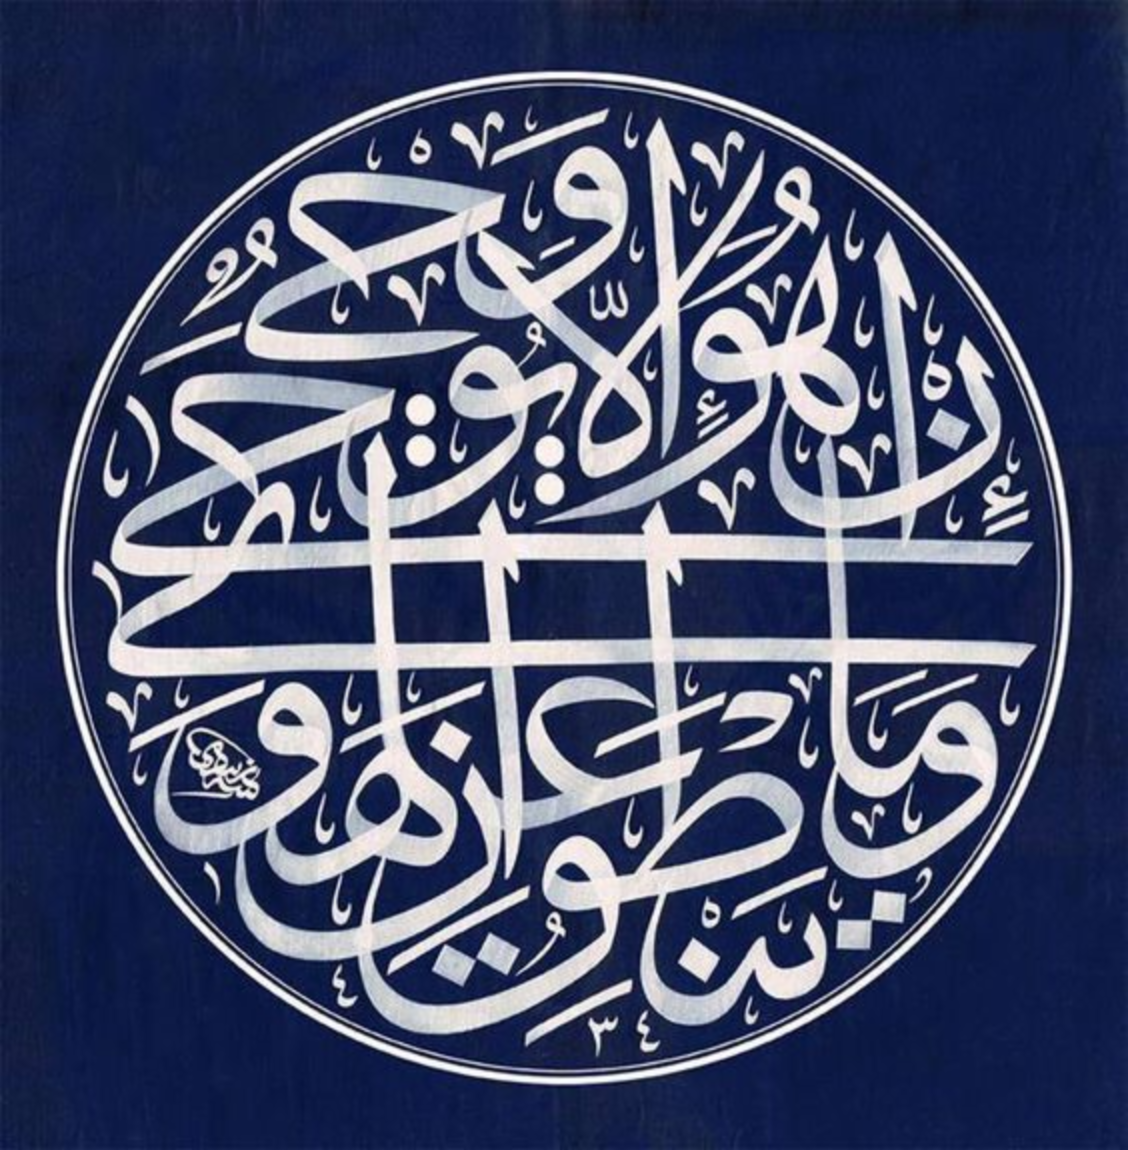 وَمَا يَنْطِقُ عَنِ الْهَوَىٰ
إِنْ هُوَ إِلَّا وَحْيٌ يُوحَىٰ
١٤٤٣